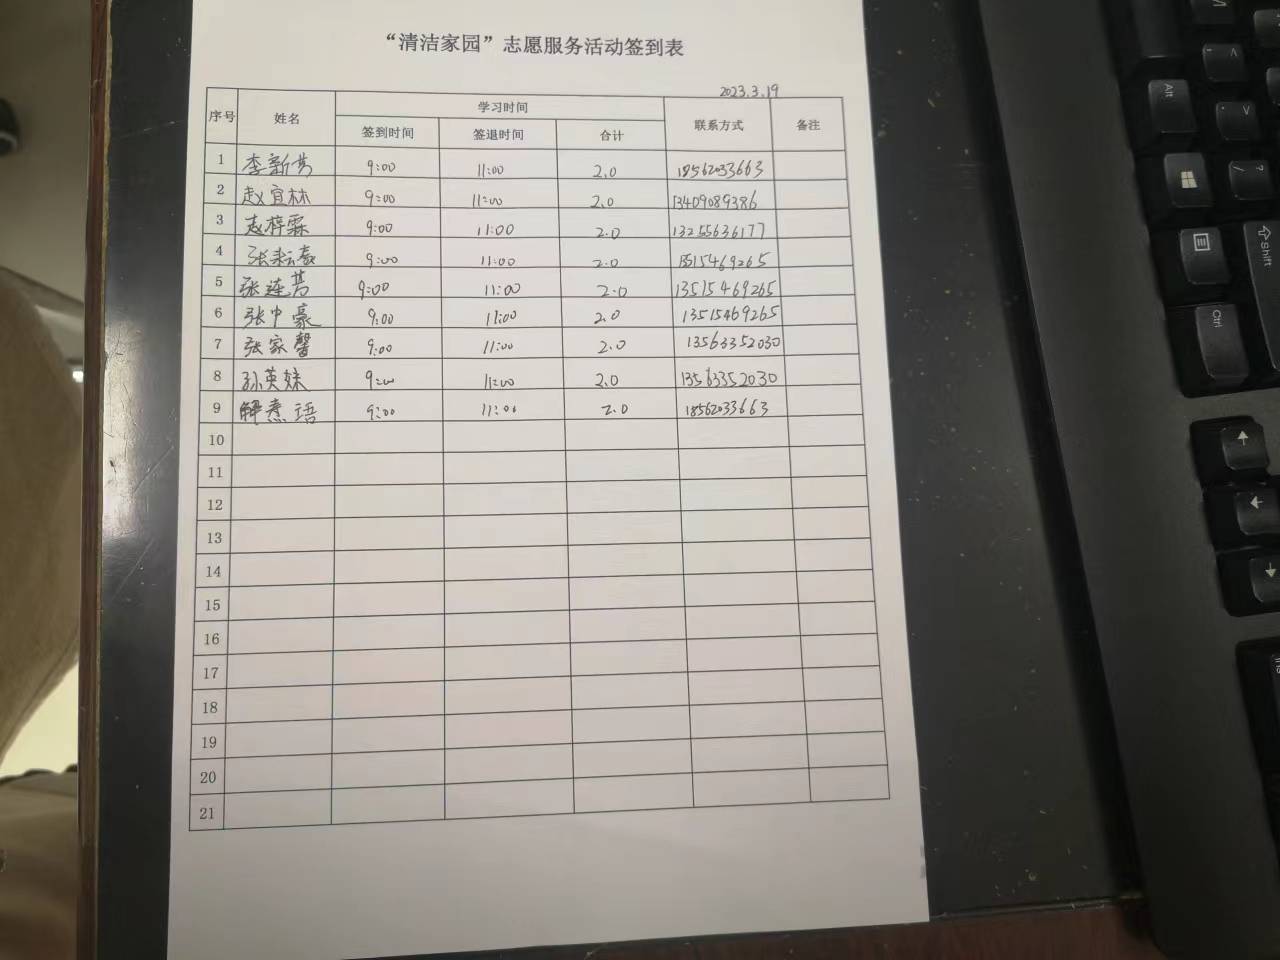 “清洁家园”志愿服务活动签到表
2023.3.19
序号 姓名 学习时间 联系方式 备注
签到时间 签退时间 合计
1 李新芳 9:00 11:00 2.0 18562033663
2 赵宜林 9:00 11:00 2.0 13409089386
3 赵梓霖 9:00 11:00 2.0 13255636177
4 张耘豪 9:00 11:00 2.0 13515469265
5 张连芳 9:00 11:00 2.0 13515469265
6 张中豪 9:00 11:00 2.0 13515469265
7 张家馨 9:00 11:00 2.0 13563352030
8 孙英妹 9:00 11:00 2.0 13563352030
9 解熹语 9:00 11:00 2.0 18562033663
10
11
12
13
14
15
16
17
18
19
20
21
Alt
Shift
Ctrl